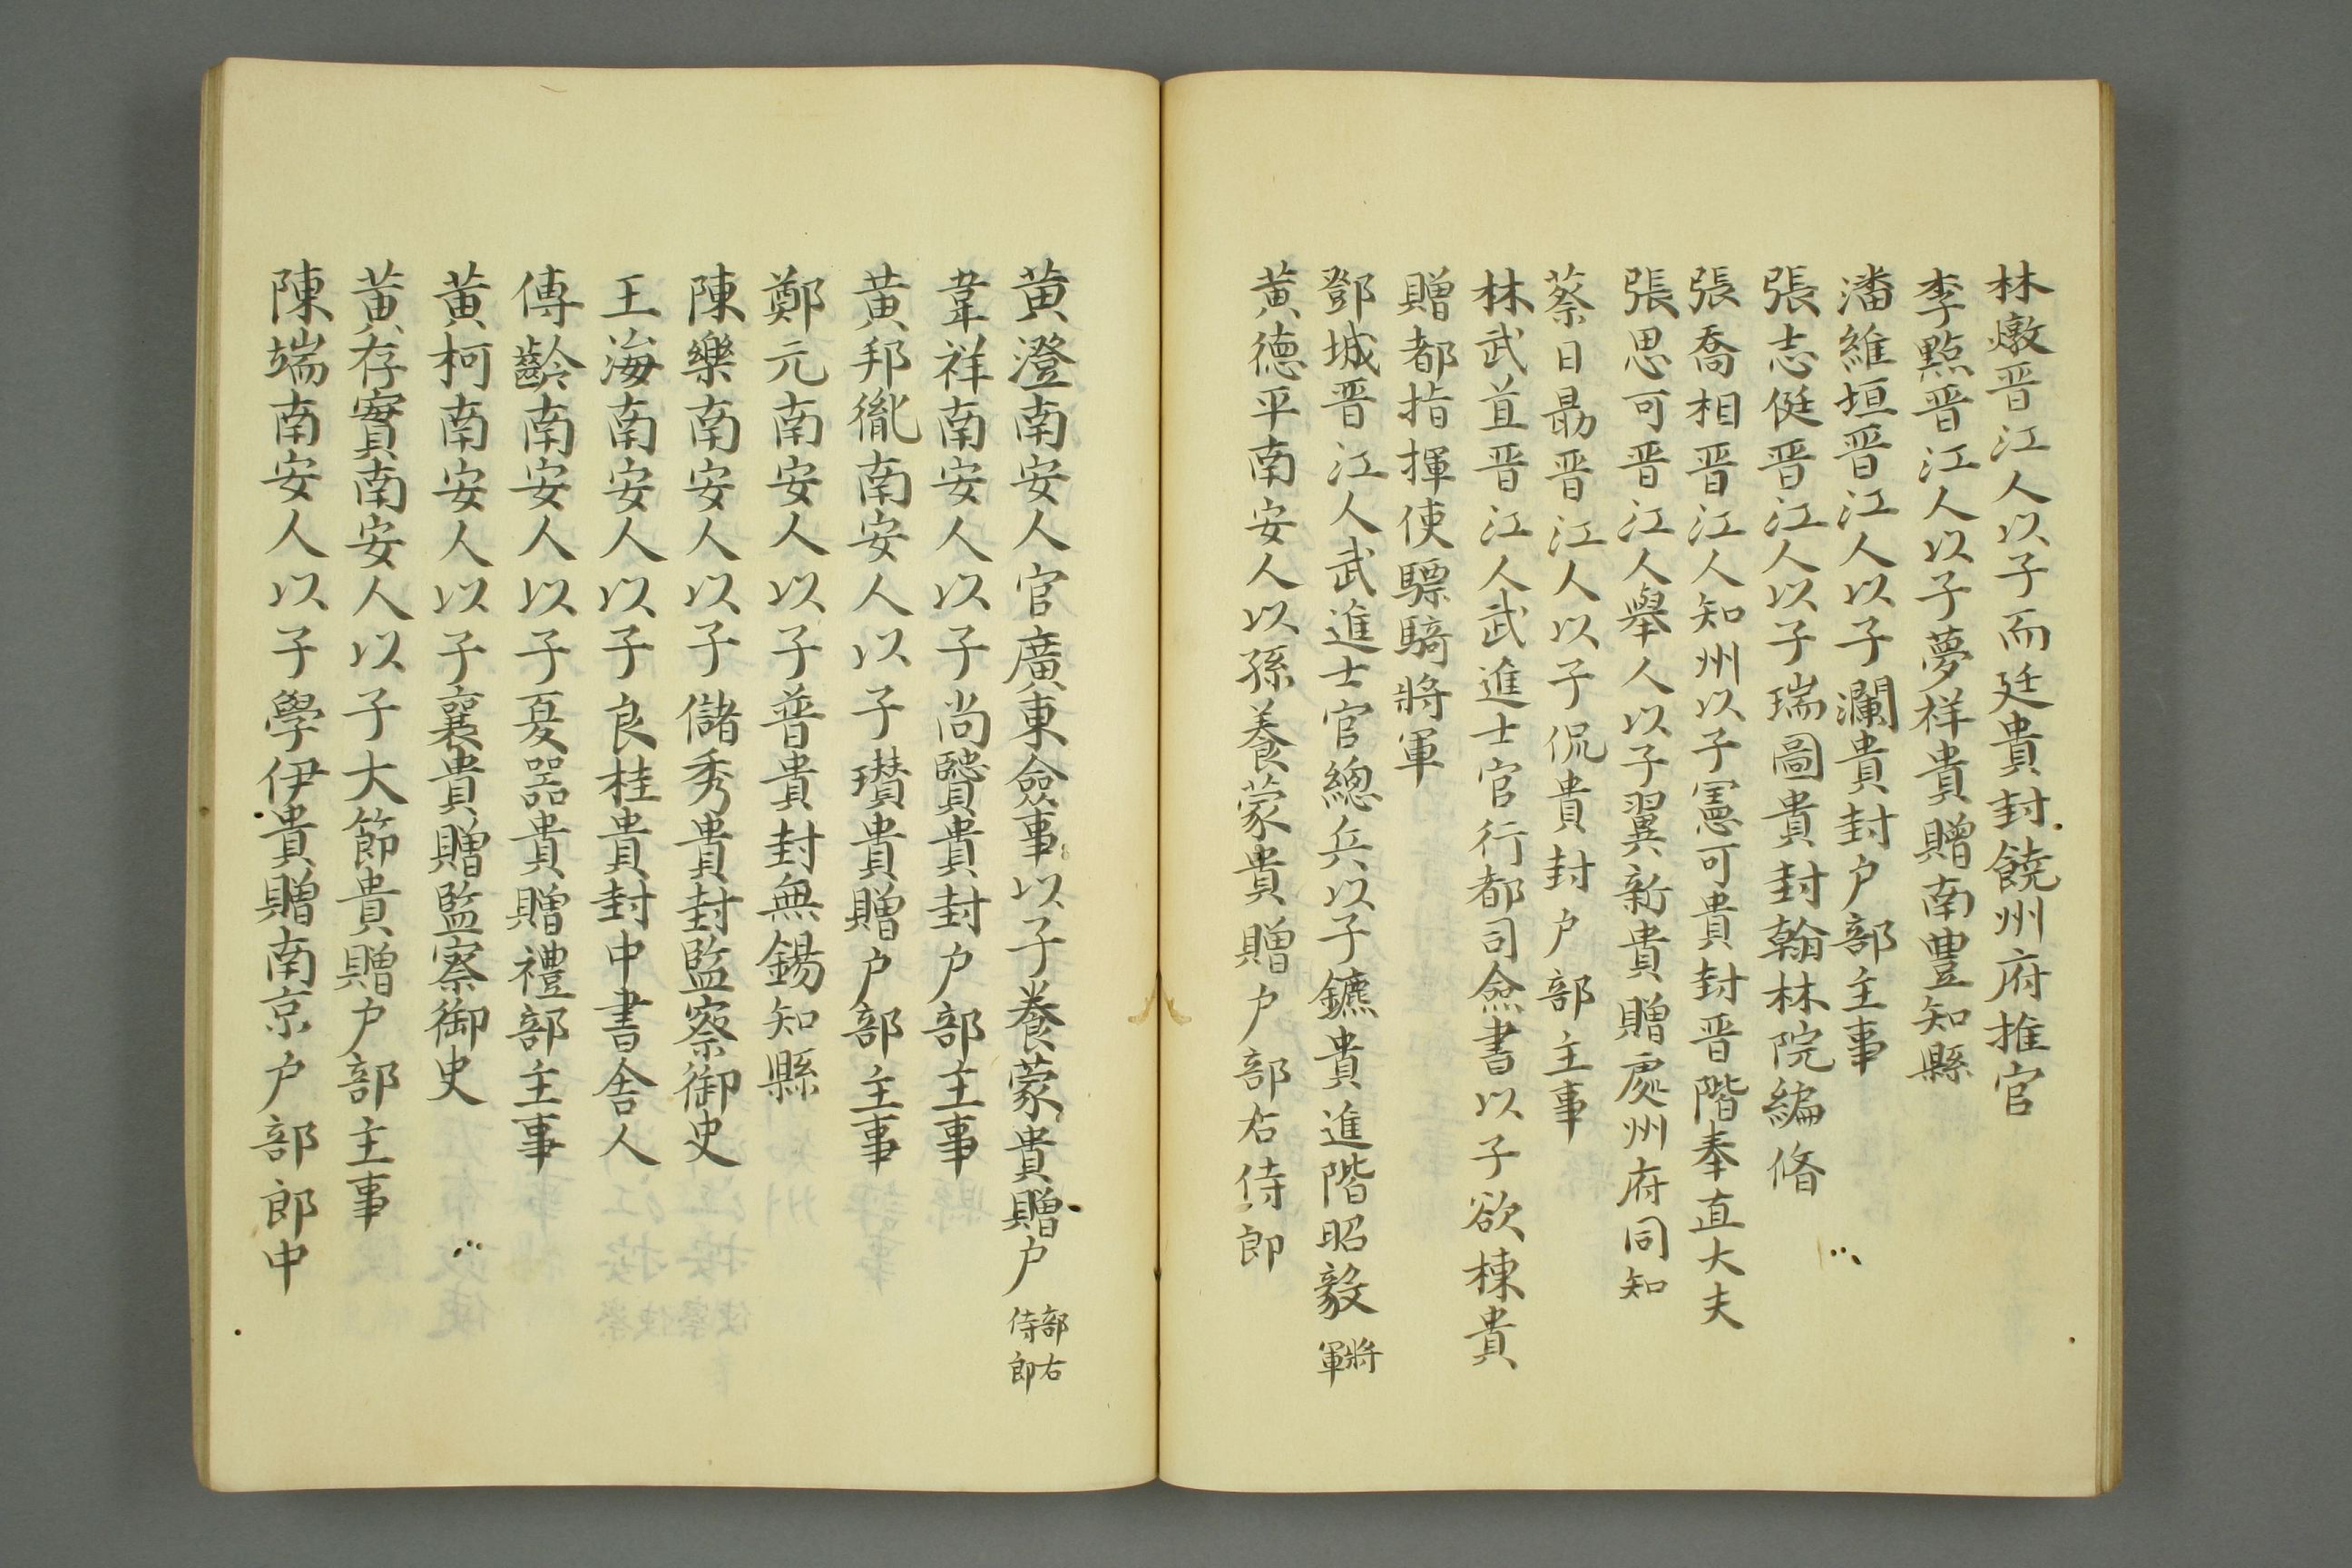 林燉晋江人以子而廷貴封饒州府推官
李點晋江人以子夢祥貴贈南豊知縣
潘維垣晋江人以子瀾貴封户部主事
張志侹晋江人以子瑞圖貴封翰林院編脩
張喬相晋江人知州以子憲可貴封晋階奉直大夫
張思可晋江人舉人以子翼新貴贈處州府同知
蔡日勗晋江人以子侃貴封户部主事
林武直晋江人武進士官行都司僉書以子欲棟貴
贈都指揮使驃騎將軍
鄧城晋江人武進士官總兵以子鑣貴進階昭毅將軍
黄德平南安人以孫養蒙貴贈户部右侍郎
黄澄南安人官廣東僉事以子養蒙貴贈户部右侍郎
韋祥南安人以子尚賢貴封户部主事
黄邦胤南安人以子瓚貴贈户部主事
鄭元南安人以子普貴封無錫知縣
陳樂南安人以子儲秀貴封監察御史
王海南安人以子良桂貴封中書舍人
傅齡南安人以子夏器貴贈禮部主事
黄柯南安人以子襄貴贈監察御史
黄存實南安人以子大節貴贈户部主事
陳端南安人以子學伊貴贈南京户部郎中